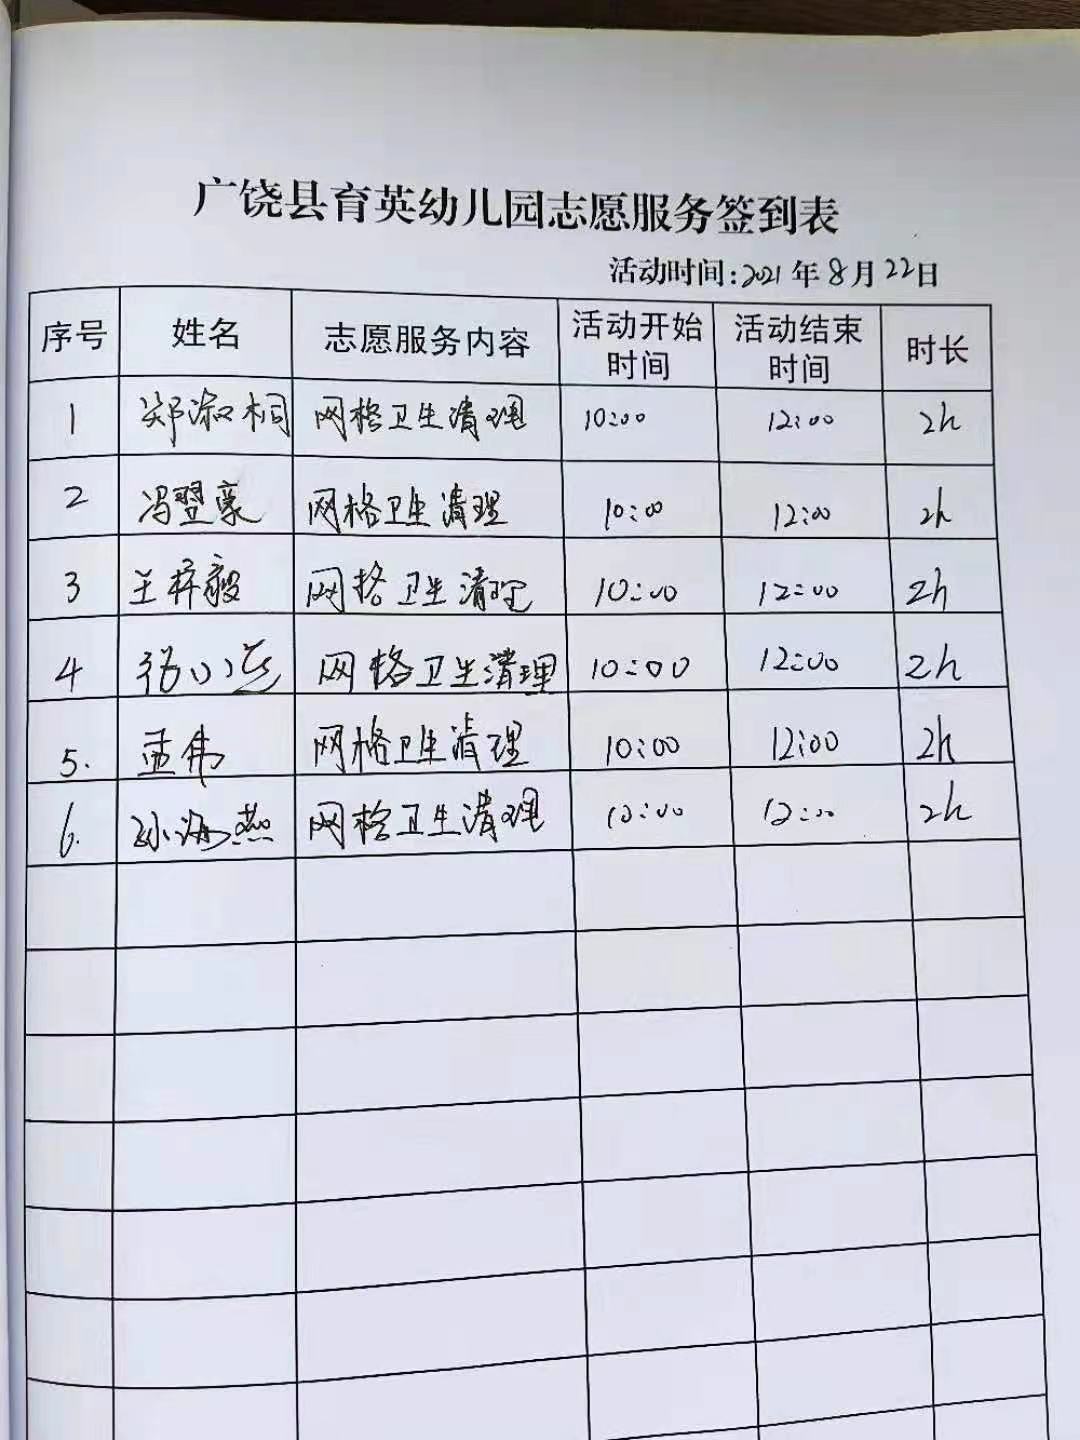 广饶县育英幼儿园志愿服务签到表
活动时间:2021年8月22日
序号 姓名 志愿服务内容 活动开始时间 活动结束时间 时长
1 郑淑桐 网格卫生清理 10:00 12:00 2h
2 冯翌豪 网格卫生清理 10:00 12:00 2h
3 王梓毅 网格卫生清理 10:00 12:00 2h
4 网格卫生清理 10:00 12:00 2h
5. 孟伟 网格卫生清理 10:00 12:00 2h
6. 孙海燕 网格卫生清理 10:00 12:00 2h